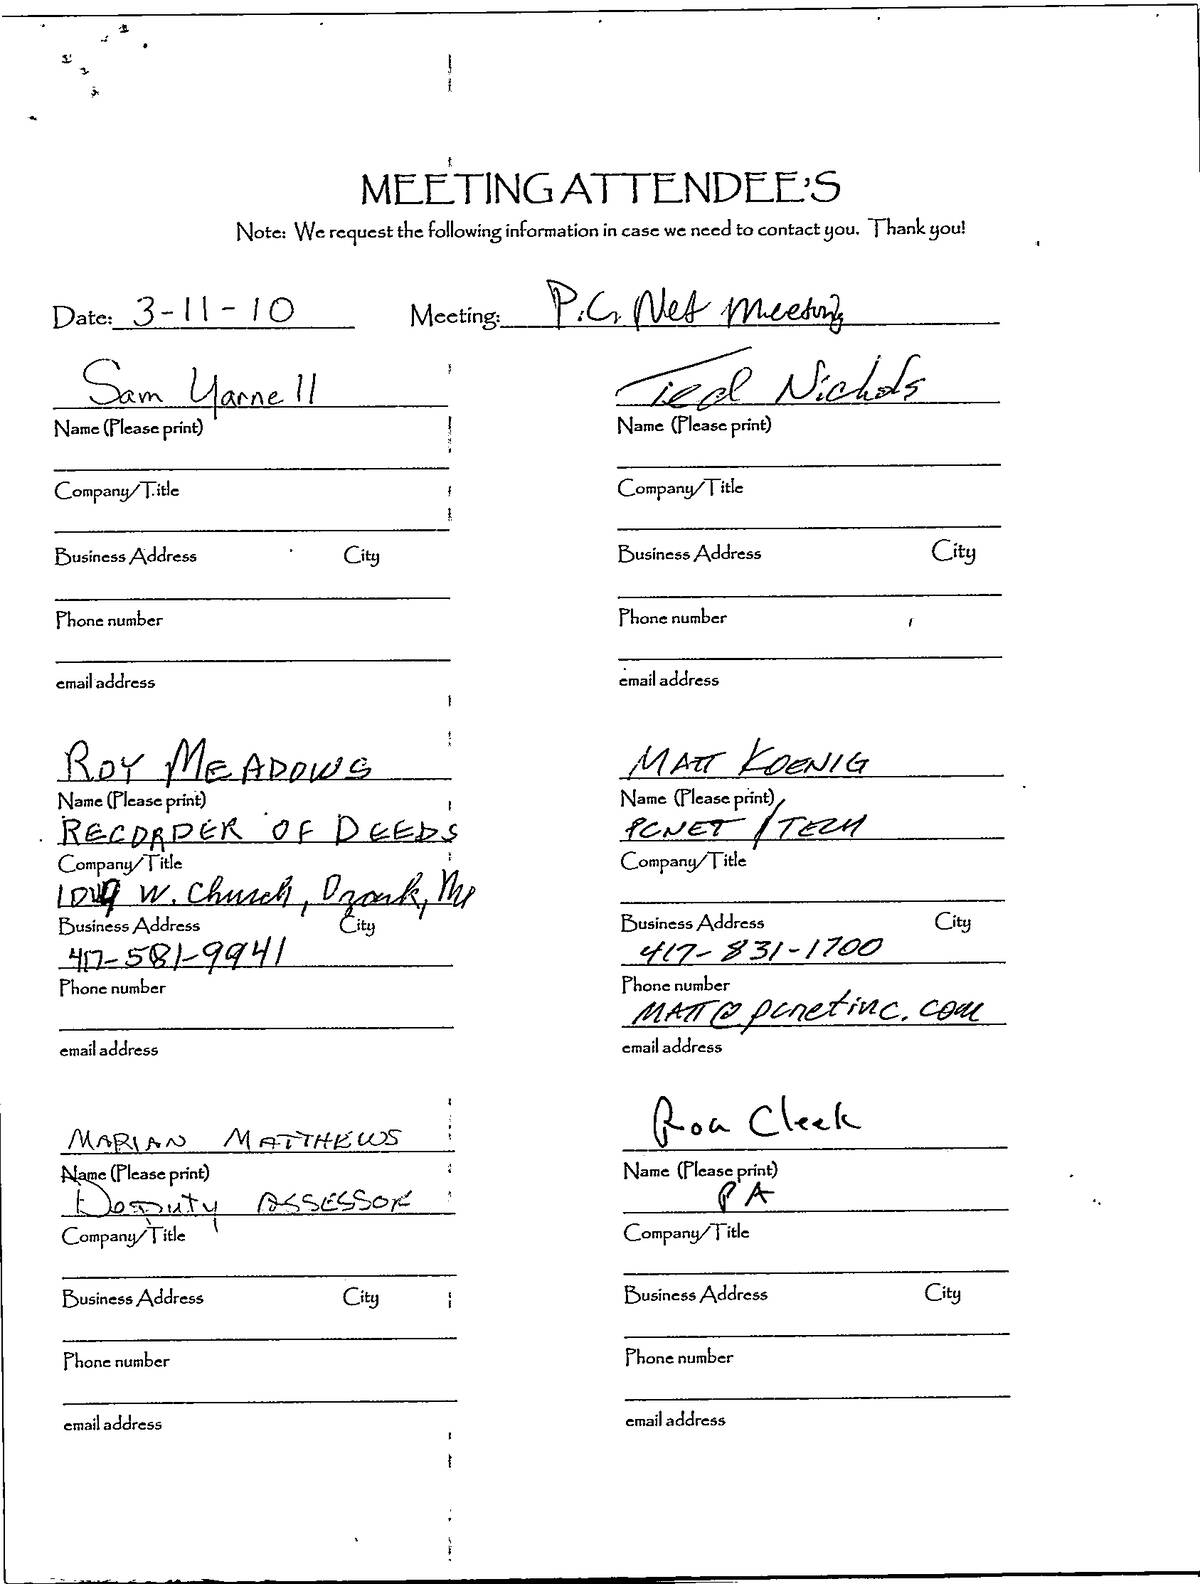 MEETING ATTENDEE'S
Note: We request the following information in case we need to contact you. Thank you!
Date: 3-11-10 Meeting: P.C. Net Meeting
Sam Yarnell
Name (Please print)
Company/Title
Business Address City
Phone number
email address
Nichols
Name (Please print)
Company/Title
Business Address City
Phone number
email address
ROY MEADOWS
Name (Please print)
RECORDER OF DEEDS
Company/Title
W. Church, Ozark, Mo
Business Address City
417-581-9941
Phone number
email address
MATT KOENIG
Name (Please print)
PCNET / TECH
Company/Title
Business Address City
417-831-1700
Phone number
MATT@pcnetinc.com
email address
MARIAN MATTHEWS
Name (Please print)
Deputy ASSESSOR
Company/Title
Business Address City
Phone number
email address
Cleek
Name (Please print)
PA
Company/Title
Business Address City
Phone number
email address